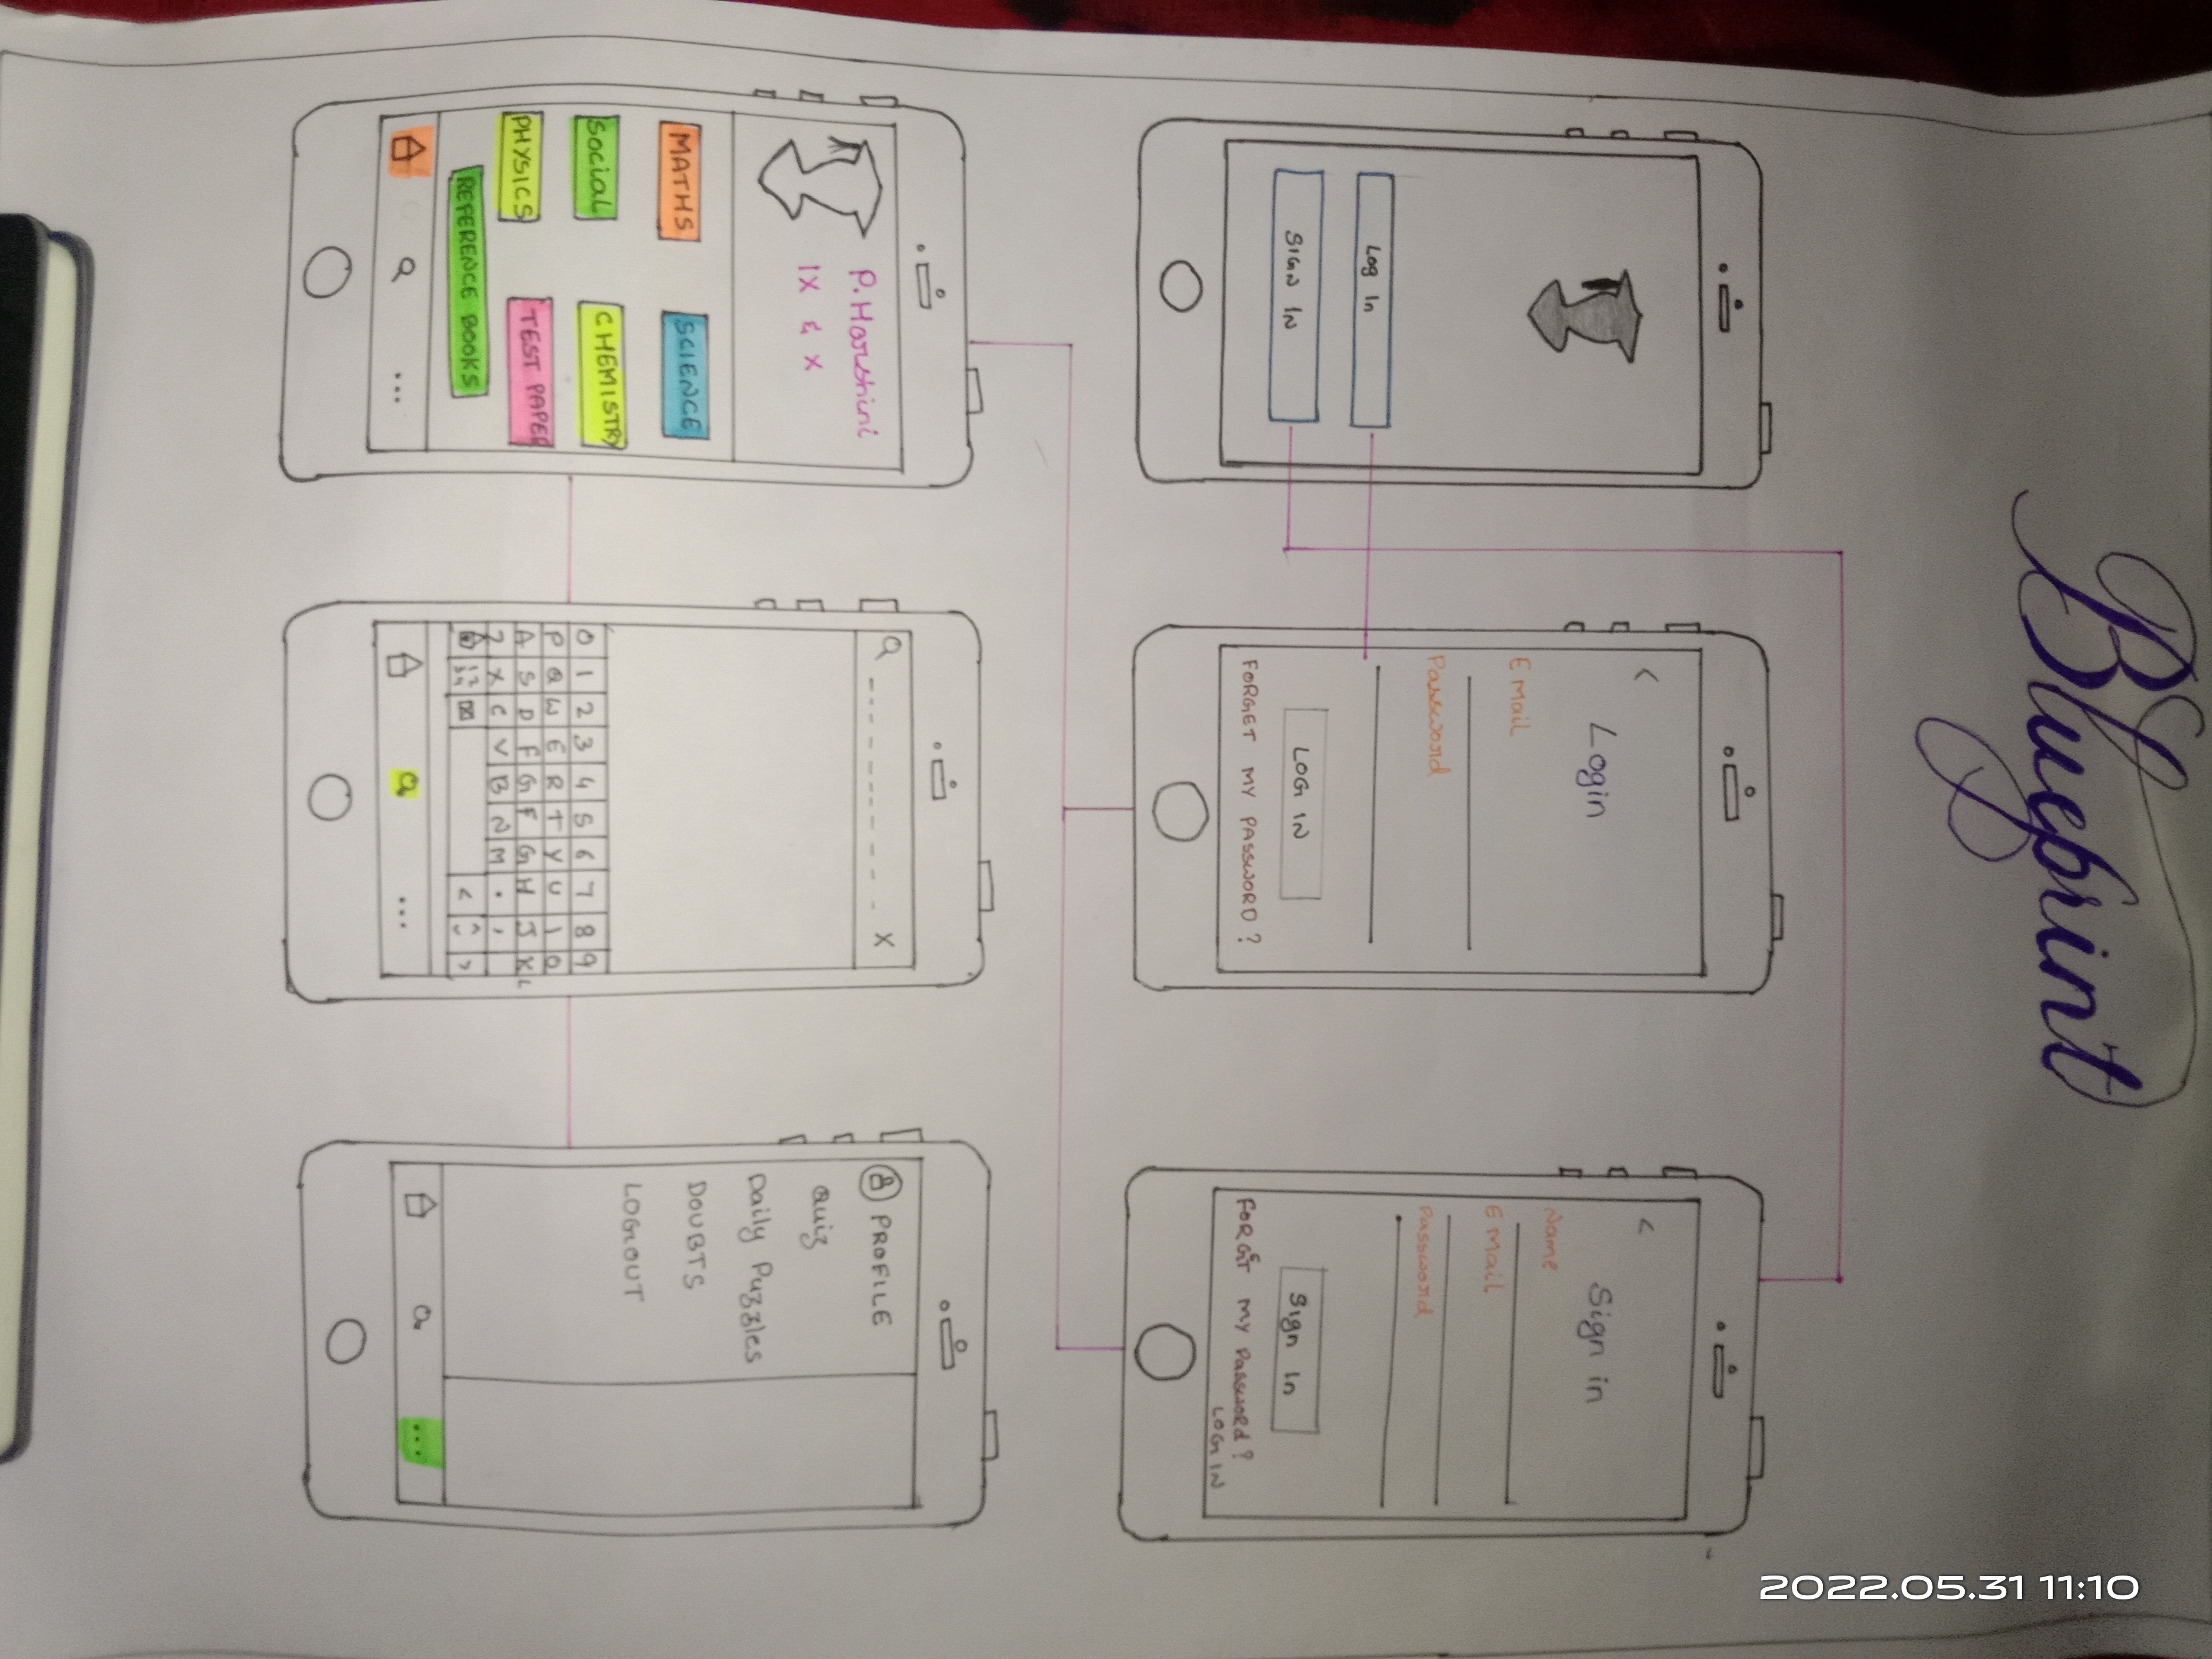 Blueprint
Log In
SIGN IN
<
Login
EMail
Password
LOG IN
FORGET MY PASSWORD?
<
Sign in
Name
EMail
Password
Sign In
FORGET MY PassWord?
LOG IN
P.Harshini
IX & X
MATHS
SCIENCE
SOCIAL
CHEMISTRY
PHYSICS
TEST PAPER
REFERENCE BOOKS
...
X
0 1 2 3 4 5 6 7 8 9
P Q W E R T Y U I O
A S D F G F G H J K L
? X C V B N M . ,
...
PROFILE
Quiz
Daily Puzzles
DOUBTS
LOGOUT
...
2022.05.31 11:10